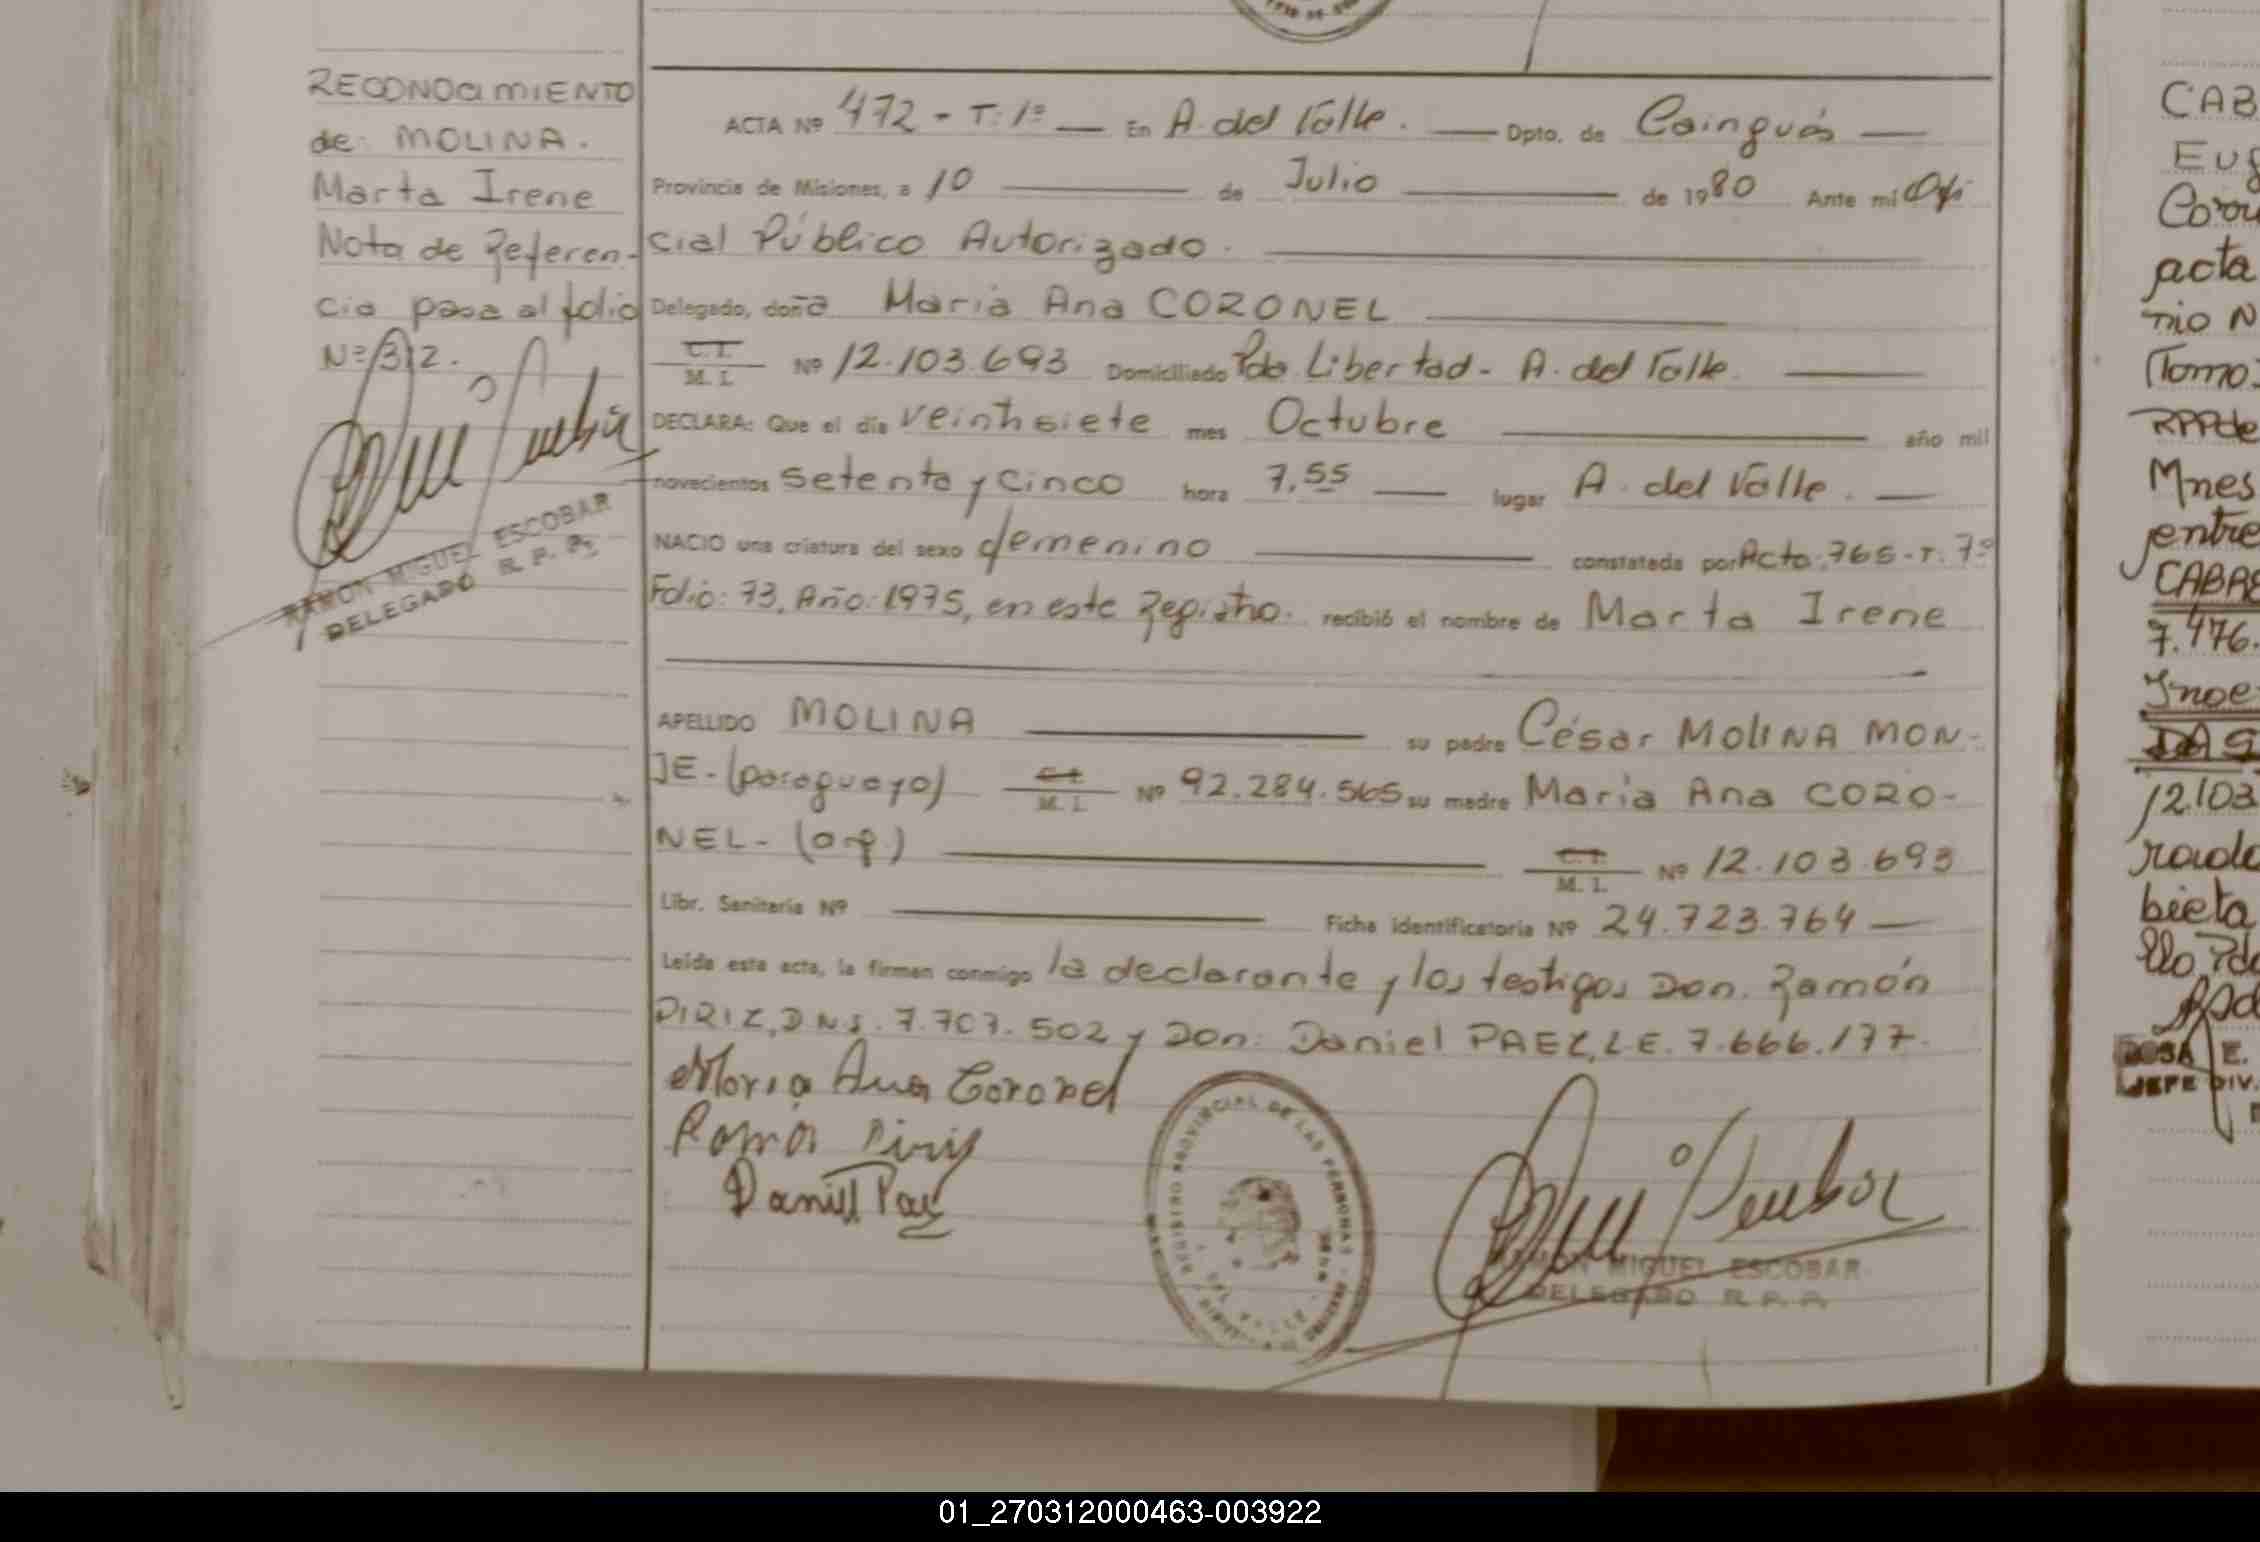 RECONOCIMIENTO
de: MOLINA.
Marta Irene
Nota de Referen-
cia pasa al folio
Nº 312.
RAMON MIGUEL ESCOBAR
DELEGADO R. P. Ps
ACTA Nº 472 - T: 1º — En A. del Valle. — Dpto. de Cainguás —
Provincia de Misiones, a 10 — de Julio — de 1980 Ante mi Ofi-
cial Público Autorizado.
Delegado, doña Maria Ana CORONEL
C.I.
M. I. Nº 12.103.693 Domiciliado Pdo Libertad - A. del Valle.
DECLARA: Que el día veintisiete mes Octubre — año mil
novecientos setenta y cinco hora 7,55 — lugar A. del Valle. —
NACIO una criatura del sexo femenino — constatada por Acta: 765 - T. 7º
Folio: 73, Año: 1975, en este Registro. recibió el nombre de Marta Irene
APELLIDO MOLINA — su padre César MOLINA MON-
JE - (paraguayo) C.I. M. I. Nº 92.284.565 su madre Maria Ana CORO-
NEL - (arg.) — C.I. M. I. Nº 12.103.693
Libr. Sanitaria Nº — Ficha identificatoria Nº 24.723.764 —
Leída esta acta, la firman conmigo la declarante y los testigos Don. Ramón
PIRIZ, D N I. 7.707.502 y Don: Daniel PAEZ, L E. 7.666.177.
Maria Ana Coronel
Ramón Piriz
Daniel Paez
REGISTRO PROVINCIAL DE LAS PERSONAS
DEL VALLE
MIGUEL ESCOBAR
DELEGADO R. P. P.
CAB
Eug
acta
Tomo:
Mnes
entre
CABA
7.476.
12.103
bieta
ROSA E.
JEFE DIV.
01_270312000463-003922